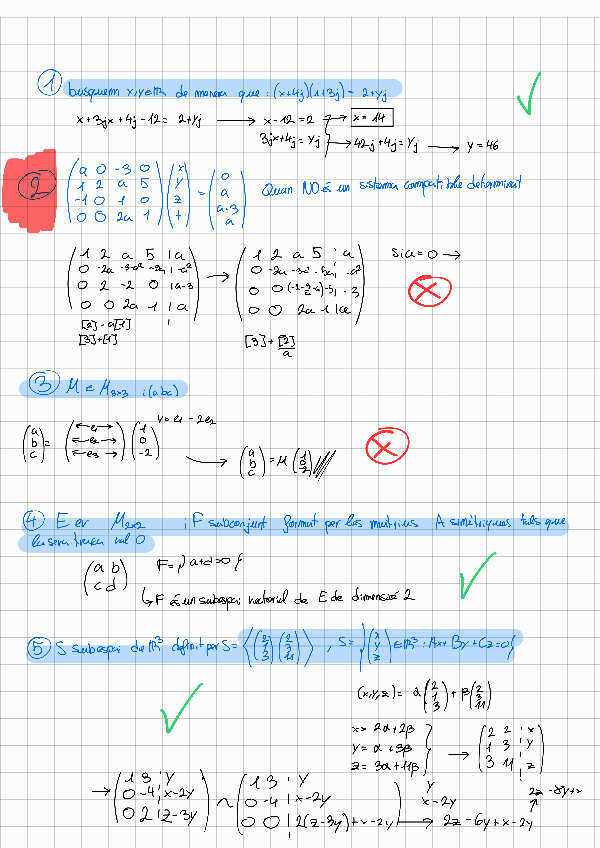 1 busquem x,y∈ℝ de manera que: (x+4j)(1+3j) = 2+yj
x + 3jx + 4j - 12 = 2+yj → x - 12 = 2 → x = 14
3jx + 4j = yj → 42j + 4j = yj → y = 46
2 (a 0 -3 0 / 1 2 a 5 / -1 0 1 0 / 0 0 2a 1) (x / y / z / t) = (0 / a / a-3 / a) Quan NO és un sistema compatible determinat
(1 2 a 5 | a / 0 -2a -3-a² -5a | -a² / 0 2 -2 0 | a-3 / 0 0 2a 1 | a) → (1 2 a 5 | a / 0 -2a -3-a² -5a | -a² / 2a 1 | a) Si a=0 →
[2] - a[1]
[3]+[1]
[3] + [2]/a
3 M ∈ M3x3 i (abc)
(a / b / c) = (e1 / e2 / e3) (1 / 0 / -2) v = e1 - 2e2
→ (a / b / c) = M (1 / 0 / -2)
4 E ev M2x2 i F subconjunt format per les matrius A simètriques tals que
la seva traça val 0
(a b / c d) F = { a+d=0 }
↳ F és un subespai vectorial de E de dimensió 2
5 S subespai de ℝ³ definit per S = ⟨(2 / 1 / 3) (2 / 3 / 11)⟩, S = {(x / y / z) ∈ ℝ³ : Ax + By + Cz = 0}
(x,y,z) = α(2 / 1 / 3) + β(2 / 3 / 11)
x = 2α+2β
y = α + 3β
z = 3α+11β
→ (2 2 | x / 1 3 | y / 3 11 | z)
→ (1 3 | y / 0 -4 | x-2y / 0 2 | z-3y) ~ (1 3 | y / 0 -4 | x-2y / 0 0 | 2(z-3y)+x-2y)
y
x-2y
→ 2z - 6y + x - 2y
2z - 8y + x